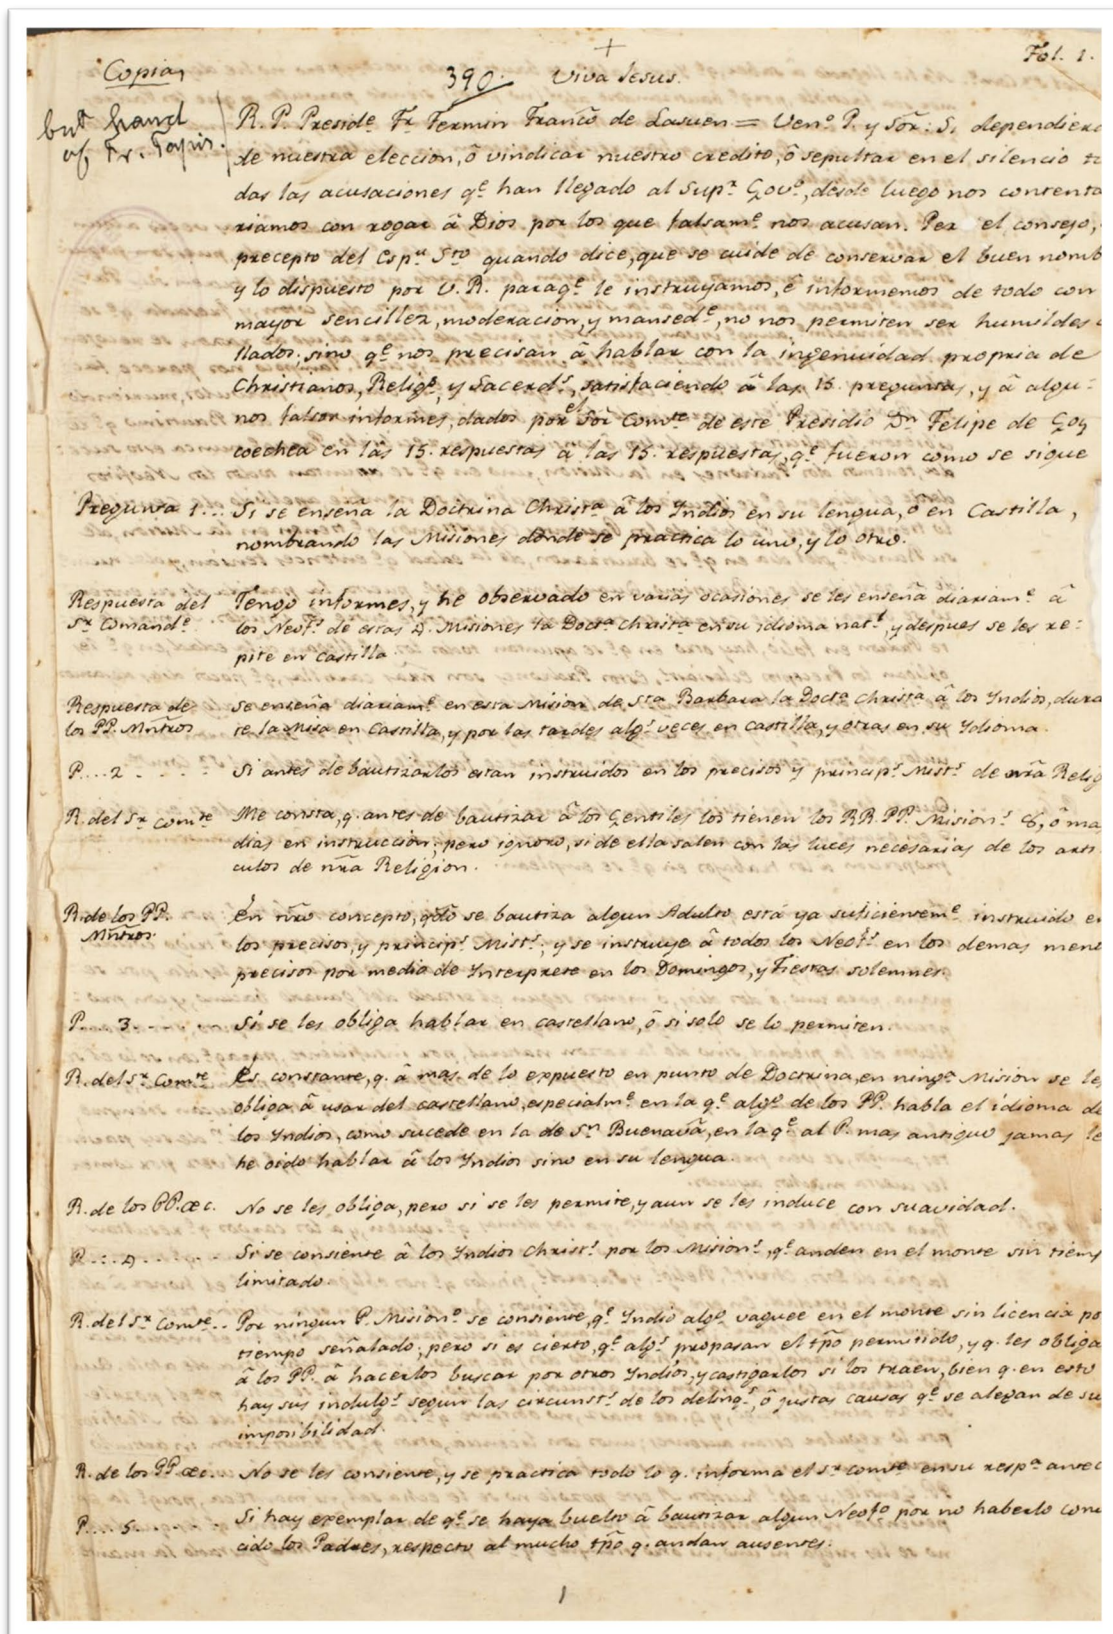 Fol. 1.
+
Copia,
390. Viva Jesus.
but hand
of Fr. Tapis.
R. P. Preside. Fr. Fermin Franco. de Lasuen = Vene. P. y Sor: Si dependiera
de nuestra eleccion, ô vindicar nuestro credito, ô sepultar en el silencio to
das las acusaciones qe. han llegado al Supr. Govo., desde luego nos contenta
riamos con rogar â Dios por los que falsame. nos acusan. Per el consejo,
precepto del Espu. Sto quando dice, que se cuide de conservar el buen nomb
y lo dispuesto por V. R. paraqe. le instruyamos, ê informemos de todo con
mayor sencillez, moderacion, y mansede., no nos permiten ser humildes
llados; sino qe. nos precisan â hablar con la ingenuidad propria de
Christianos, Religs. y Sacerds., satisfaciendo â las 15. preguntas, y â algu=
nos falsos informes, dados por el Sor Comte. de este Presidio Dn. Felipe de Goy
coechea en las 15. respuestas â las 15. respuestas, qe. fueron como se sigue
Pregunta 1... Si se enseña la Doctrina Christa. â los Indios en su lengua, ô en Castilla,
nombrando las Misiones donde se practica lo uno, y lo otro.
Respuesta del Tengo informes, y he observado en varias ocasiones se les enseña diariame. â
Sr. Comande. los Neofs. de estas 4. Misiones la Docta. Christa. en su idioma natl., y despues se les re=
pite en Castilla.
Respuesta de Se enseña diariame. en esta Mision de Sta Barbara la Docta. Christa. â los Indios, dura
los PP. Mñtros te la Misa en Castilla, y por las tardes algs. veces en castilla, y otras en su Idioma.
P....2.... Si antes de bautizarlos estan instruidos en los precisos y princips. Mists. de nrã Relig
R. del Sr. Comte Me consta, q. antes de bautizar â los Gentiles los tienen los RR. PP. Misions. 8, ô ma
dias en instruccion; pero ignoro, si de ella salen con las luces necesarias de los arti
culos de nrã Religion.
R. de los PP. En nrõ concepto, qdo se bautiza algun Adulto está ya suficienteme. instruido en
Mñtros. los precisos, y princips. Mists.; y se instruye â todos los Neofs. en los demas meno
precisos por medio de Interprete en los Domingos, y Fiestas solemnes.
P....3.... Si se les obliga hablar en castellano, ô si solo se lo permiten.
R. del Sr. Comte. Es constante, q. â mas de lo expuesto en punto de Doctrina, en ninga. Mision se le
obliga â usar del castellano, especialme. en la qe. algo. de los PP. habla el idioma de
los Indios, como sucede en la de Sn. Buenavã, en la qe. al P. mas antiguo jamas le
he oido hablar â los Indios sino en su lengua.
R. de los PP. &c. No se les obliga, pero si se les permite, y aun se les induce con suavidad.
P....4.... Si se consiente â los Indios Christs. por los Misions., qe. anden en el monte sin tiemp
limitado.
R. del Sr. Comte.. Por ningun P. Misiono. se consiente, qe. Indio algo. vaguee en el monte sin licencia po
tiempo señalado, pero si es cierto, qe. algs. propasan el tpõ permitido, y q. les obliga
â los PP. â hacerlos buscar por otros Indios, y castigarlos si los traen, bien q. en esto
hay sus indulgs. segun las circunsts. de los delinqs., ô justas causas qe. se alegan de su
imposibilidad.
R. de los PP &c. No se les consiente, y se practica todo lo q. informa el Sr. Comte en su respa. antec
P....5.... Si hay exemplar de qe. se haya buelto â bautizar algun Neofo. por no haberlo cono
cido los Padres, respecto al mucho tpõ q. andan ausentes.
1